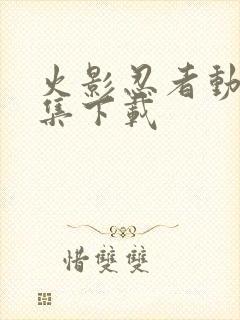 火影忍者動
集下載
惜雙雙